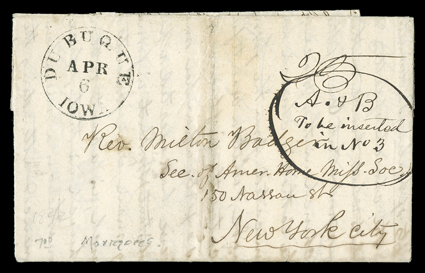 DUBUQUE
APR
6
IOW.
25
A & B
To be inserted
in No 3
Rev. Milton Badger
Sec. of Amer. Home Miss. Soc.
150 Nassau st
New York city